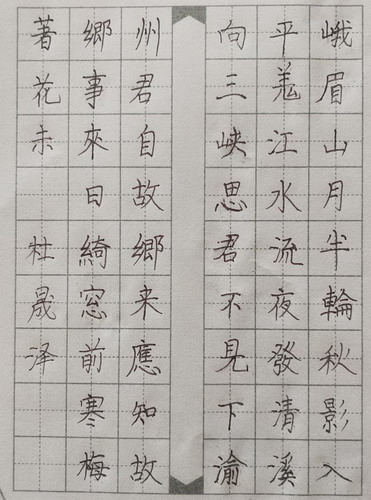 峨眉山月半輪秋影入
平羌江水流夜發清溪
向三峽思君不見下渝
州君自故鄉来應知故
鄉事來日綺窓前寒梅
著花未 杜晟泽